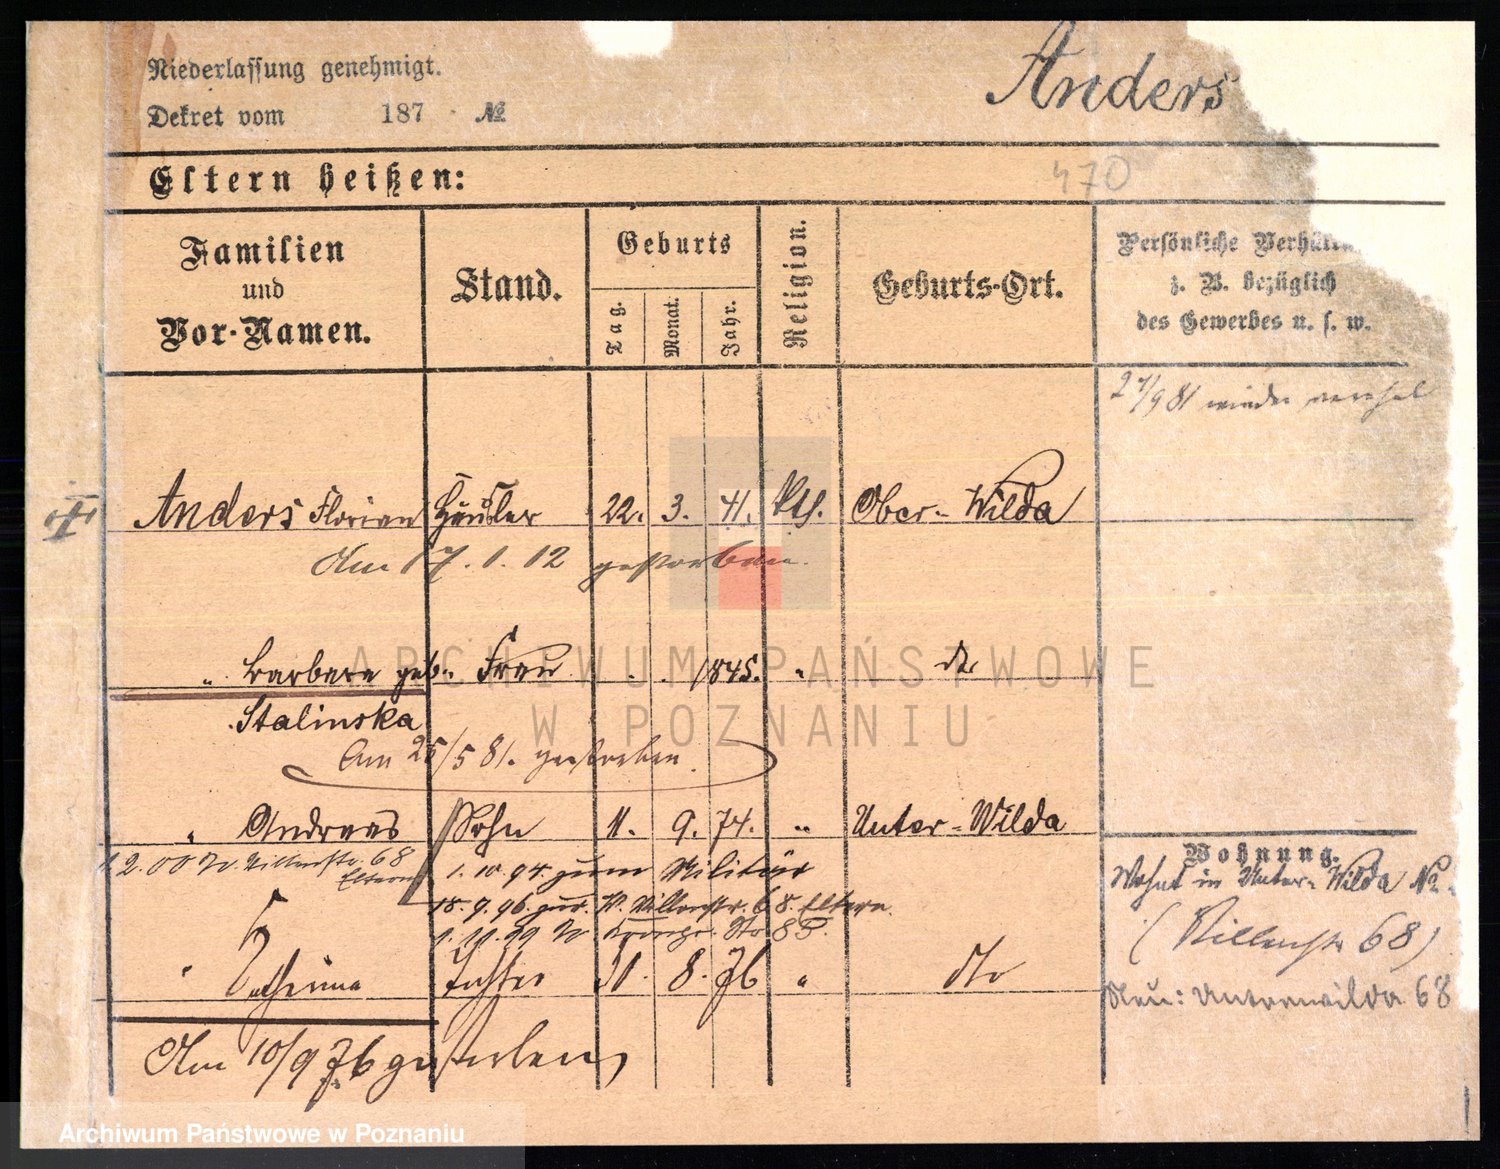 Niederlassung genehmigt.
Anders
Dekret vom 187 №
Eltern heißen:
470
Familien und Vor-Namen.
Stand.
Geburts
Tag.
Monat.
Jahr.
Religion.
Geburts-Ort.
Persönliche
z. B. bezüglich
des Gewerbes u. s. w.
27/9 81 wieder
Anders Florian Häusler 22. 3. 41. kth. Ober-Wilda
Am 17. 1. 12 gestorben.
" Barbara geb. Frau 1845. " dto
Stalinska
Am 25/5 81. gestorben.
" Andreas Sohn 11. 9. 74. " Unter-Wilda
Wohnung.
2.00 68 Eltern
1. 10. 94. zum Militär
Wohnt in Unter-Wilda №.
18. 9. 96. zur. 68. Eltern.
( 68)
1. 11. 99
" Tochter 8. 76 " dto
Neu: Unterwilda 68
Am 10/9 76 gestorben
ARCHIWUM PAŃSTWOWE
W POZNANIU
Archiwum Państwowe w Poznaniu